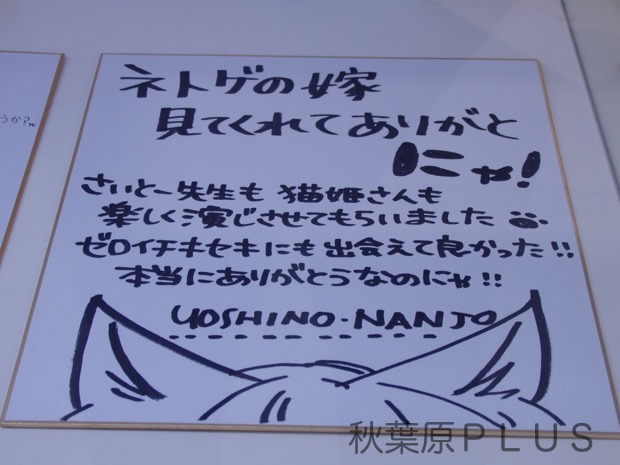 ネトゲの嫁
見てくれてありがと
にゃ!
さいとー先生も 猫姫さんも
楽しく演じさせてもらいました
ゼロイチキセキにも出会えて良かった!!
本当にありがとうなのにゃ!!
YOSHINO・NANJO
うか?w
秋葉原PLUS